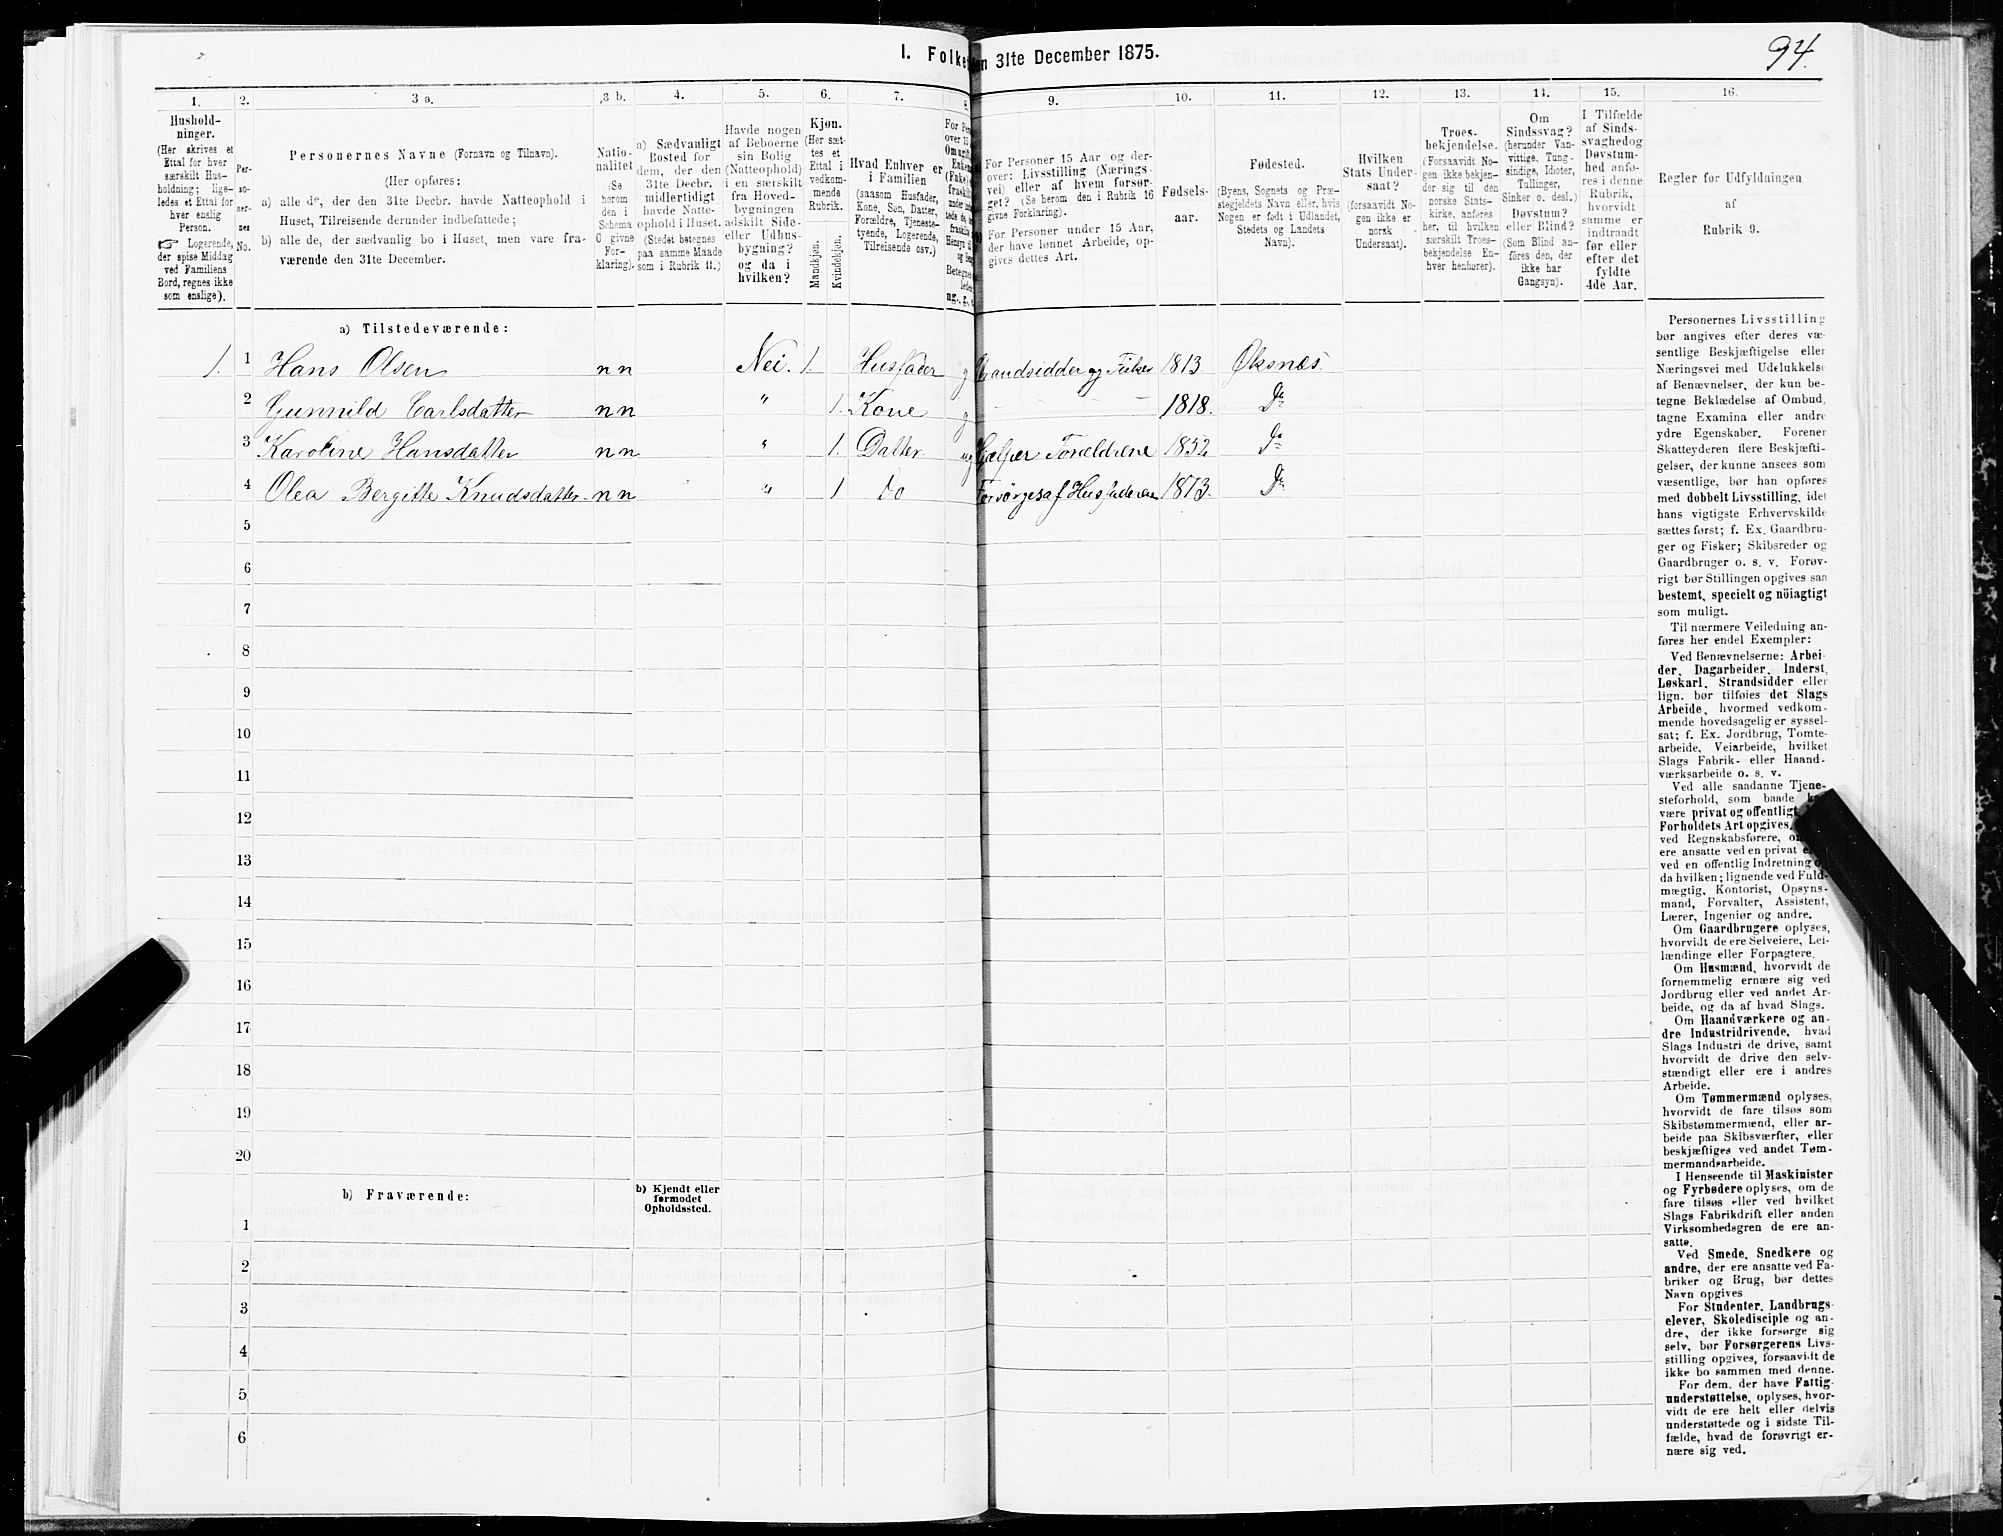 94.
I. Folke
en 31te December 1875.
1.
Hushold-
ninger.
(Her skrives et
Ettal for hver
særskilt Hus-
holdning; lige-
ledes et Ettal for
hver enslig
Person.
☞ Logerende,
der spise Middag
ved Familiens
Bord, regnes ikke
som enslige).
2.
Per-
so-
ner-
nes
No.
3 a.
Personernes Navne (Fornavn og Tilnavn).
(Her opføres:
a) alle de, der den 31te Decbr. havde Natteophold i
Huset, Tilreisende derunder indbefattede;
b) alle de, der sædvanlig bo i Huset, men vare fra-
værende den 31te December.
3 b.
Natio-
nalitet
(Se
herom
den i
Schema
C givne
For-
klaring).
4.
a) Sædvanligt
Bosted for
dem, der den
31te Decbr.
midlertidigt
havde Natte-
ophold i Huset.
(Stedet betegnes
paa samme Maade
som i Rubrik 11.)
5.
Havde nogen
af Beboerne
sin Bolig
(Natteophold)
i en særskilt
fra Hoved-
bygningen
adskilt Side-
eller Udhus-
bygning?
og da i
hvilken?
6.
Kjøn.
(Her sæt-
tes et
Ettal i
vedkom-
mende
Rubrik.
Mandkjøn.
Kvindekjøn.
7.
Hvad Enhver er
i Familien
(saasom Husfader,
Kone, Søn, Datter,
Forældre, Tjeneste-
tyende, Logerende,
Tilreisende osv.)
8.
For Pe
over 15
Om
Enke
(Fuke
fraskil
under
Hensyn
og
Betegne
lede
ug., g.,
9.
For Personer 15 Aar og der-
over: Livsstilling (Nærings-
vei) eller af hvem forsør-
get? (Se herom den i Rubrik 16
givne Forklaring).
For Personer under 15 Aar,
der have lønnet Arbeide, op-
gives dettes Art.
10.
Fødsels-
aar.
11.
Fødested.
(Byens, Sognets og Præ-
stegjeldets Navn eller, hvis
Nogen er født i Udlandet,
Stedets og Landets
Navn).
12.
Hvilken
Stats Under-
saat?
(forsaavidt No-
gen ikke er
norsk
Undersaat).
13.
Troes-
bekjendelse.
(Forsaavidt No-
gen ikke bekjen-
der sig til den
norske Stats-
kirke, anføres
her, til hvilken
særskilt Troes-
bekjendelse En-
hver henhører).
14.
Om
Sindssvag?
(herunder Van-
vittige, Tung-
sindige, Idioter,
Tullinger,
Sinker o. desl.)
Døvstum?
eller Blind?
(Som Blind an-
føres den, der
ikke har
Gangsyn).
15.
I Tilfælde
af Sinds-
svaghed og
Døvstum-
hed anfø-
res i denne
Rubrik,
hvorvidt
samme er
indtraadt
før eller
efter det
fyldte
4de Aar.
16.
Regler for Udfyldningen
af
Rubrik 9.
a) Tilstedeværende:
1. 1 Hans Olsen nn Nei. 1. Husfader g Strandsidder og Fisker 1813 Øksnæs.
2 Gunnild Carlsdatter nn " 1. Kone g — — — 1818. Do
3 Karoline Hansdatter nn " 1. Datter ug Hjælper Forældrene 1852 Do
4 Olea Bergitte Knudsdatter nn " 1 Do Forsørges af Husfaderen 1873. Do
5
6
7
8
9
10
11
12
13
14
15
16
17
18
19
20
b) Fraværende:
b) Kjendt eller
formodet
Opholdssted.
1
2
3
4
5
6
Personernes Livsstilling
bør angives efter deres væ-
sentlige Beskjæftigelse eller
Næringsvei med Udelukkelse
af Benævnelser, der kun be-
tegne Beklædelse af Ombud,
tagne Examina eller andre
ydre Egenskaber. Forener
Skatteyderen flere Beskjæfti-
gelser, der kunne ansees som
væsentlige, bør han opføres
med dobbelt Livsstilling, idet
hans vigtigste Erhvervskilde
sættes først; f. Ex. Gaardbru-
ger og Fisker; Skibsreder og
Gaardbruger o. s. v. Forøv-
rigt bør Stillingen opgives saa
bestemt, specielt og nöiagtigt
som muligt.
Til nærmere Veiledning an-
føres her endel Exempler:
Ved Benævnelserne: Arbei-
der, Dagarbeider, Inderst,
Løskarl, Strandsidder eller
lign. bør tilføies det Slags
Arbeide, hvormed vedkom-
mende hovedsagelig er syssel-
sat; f. Ex. Jordbrug, Tomte-
arbeide, Veiarbeide, hvilket
Slags Fabrik- eller Haand-
værksarbeide o. s. v.
Ved alle saadanne Tjene-
steforhold, som baade
være privat og offentligt,
Forholdets Art opgives,
ved Regnskabsførere, om
ere ansatte ved en privat
ved en offentlig Indretning
da hvilken; lignende ved Fuld-
mægtig, Kontorist, Opsyns-
mand, Forvalter, Assistent,
Lærer, Ingeniør og andre.
Om Gaardbrugere oplyses,
hvorvidt de ere Selveiere, Lei-
lændinge eller Forpagtere.
Om Husmænd, hvorvidt de
fornemmelig ernære sig ved
Jordbrug eller ved andet Ar-
beide, og da af hvad Slags.
Om Haandværkere og an-
dre Industridrivende, hvad
Slags Industri de drive, samt
hvorvidt de drive den selv-
stændigt eller ere i andres
Arbeide.
Om Tømmermænd oplyses,
hvorvidt de fare tilsøs som
Skibstømmermænd, eller ar-
beide paa Skibsværfter, eller
beskjæftiges ved andet Tøm-
mermandsarbeide.
I Henseende til Maskinister
og Fyrbødere oplyses, om de
fare tilsøs eller ved hvilket
Slags Fabrikdrift eller anden
Virksomhedsgren de ere an-
satte.
Ved Smede, Snedkere og
andre, der ere ansatte ved Fa-
briker og Brug, bør dettes
Navn opgives
For Studenter, Landbrugs-
elever, Skoledisciple og an-
dre, der ikke forsørge sig
selv, bør Forsørgerens Livs-
stilling opgives, forsaavidt de
ikke bo sammen med denne.
For dem, der have Fattig-
understøttelse, oplyses, hvor-
vidt de ere helt eller delvis
understøttede og i sidste Til-
fælde, hvad de forøvrigt er-
nære sig ved.